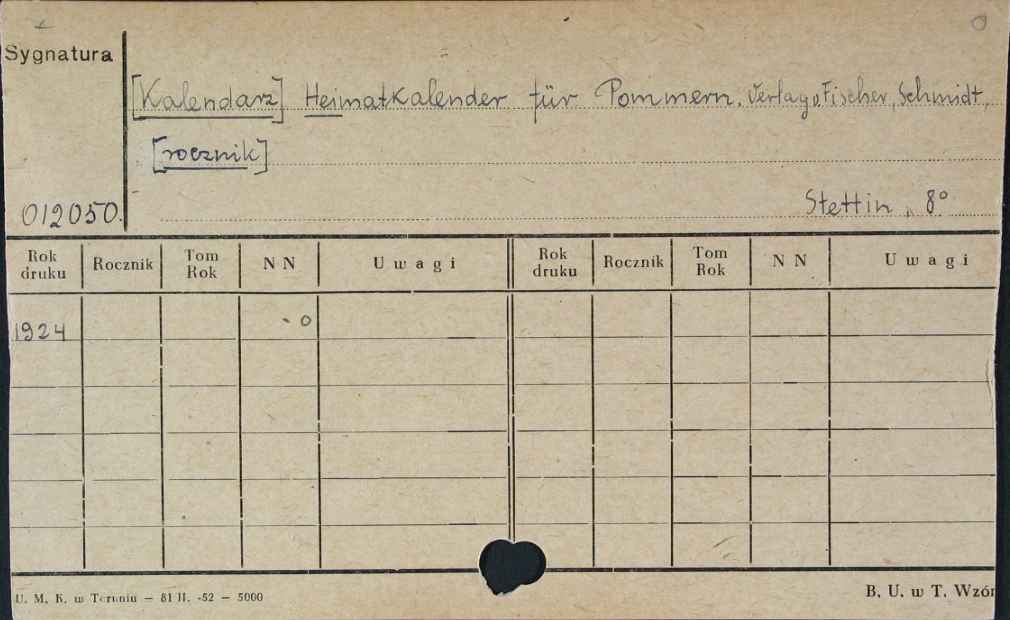 Sygnatura
[Kalendarz] Heimatkalender für Pommern. Verlag v. Fischer, Schmidt,
[rocznik]
012050. Stettin, 8°
Rok druku Rocznik Tom Rok N N Uwagi Rok druku Rocznik Tom Rok N N Uwagi
1924
U. M. K. w Toruniu — 81 II. -52 — 5000 B. U. w T. Wzór